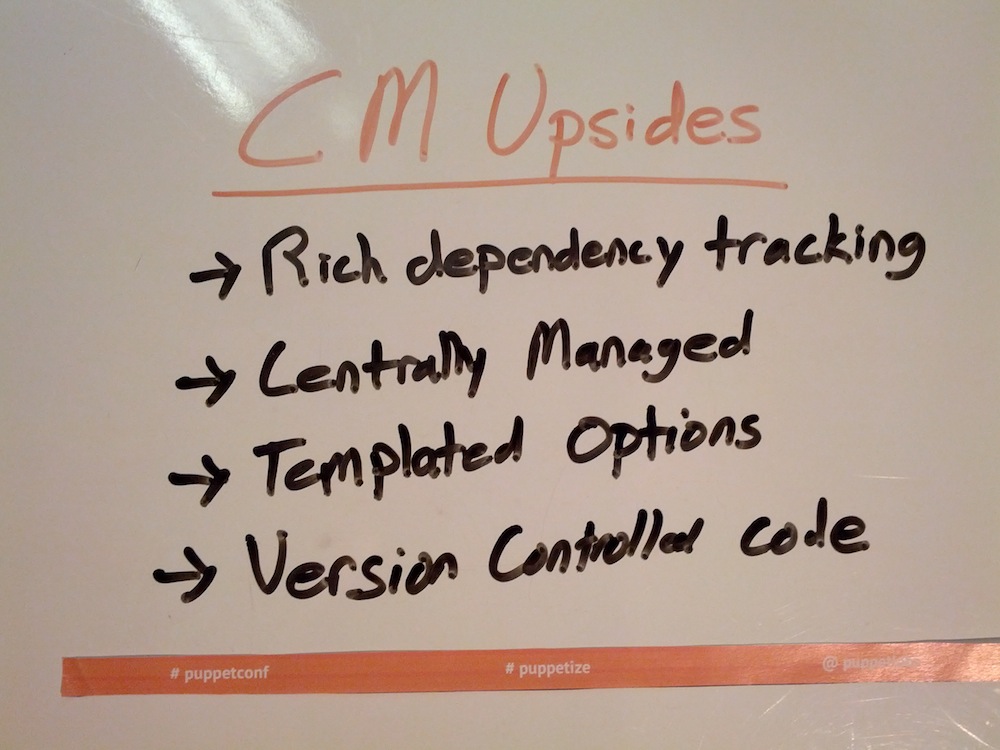 CM Upsides
→ Rich dependency tracking
→ Centrally Managed
→ Templated Options
→ Version Controlled code
# puppetconf # puppetize